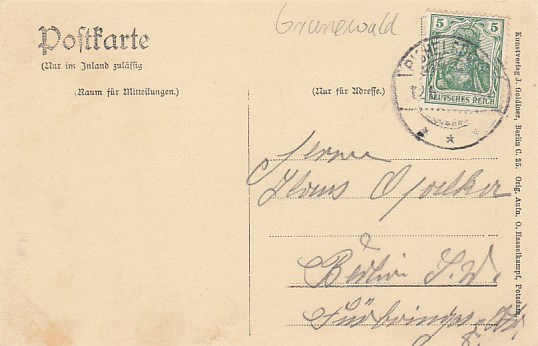 Grunewald
Postkarte
(Nur im Inland zulässig
(Raum für Mitteilungen.)
(Nur für Adresse.)
5 5
DEUTSCHES REICH
Herrn
Hans
Berlin S.W.
Kunstverlag J. Goldiner, Berlin C. 25. Orig. Aufn. O. Hasselkampf, Potsdam.